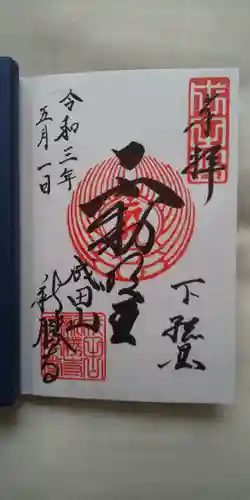 奉拝
下総
不動明王
成田山
新勝寺
令和三年
五月一日